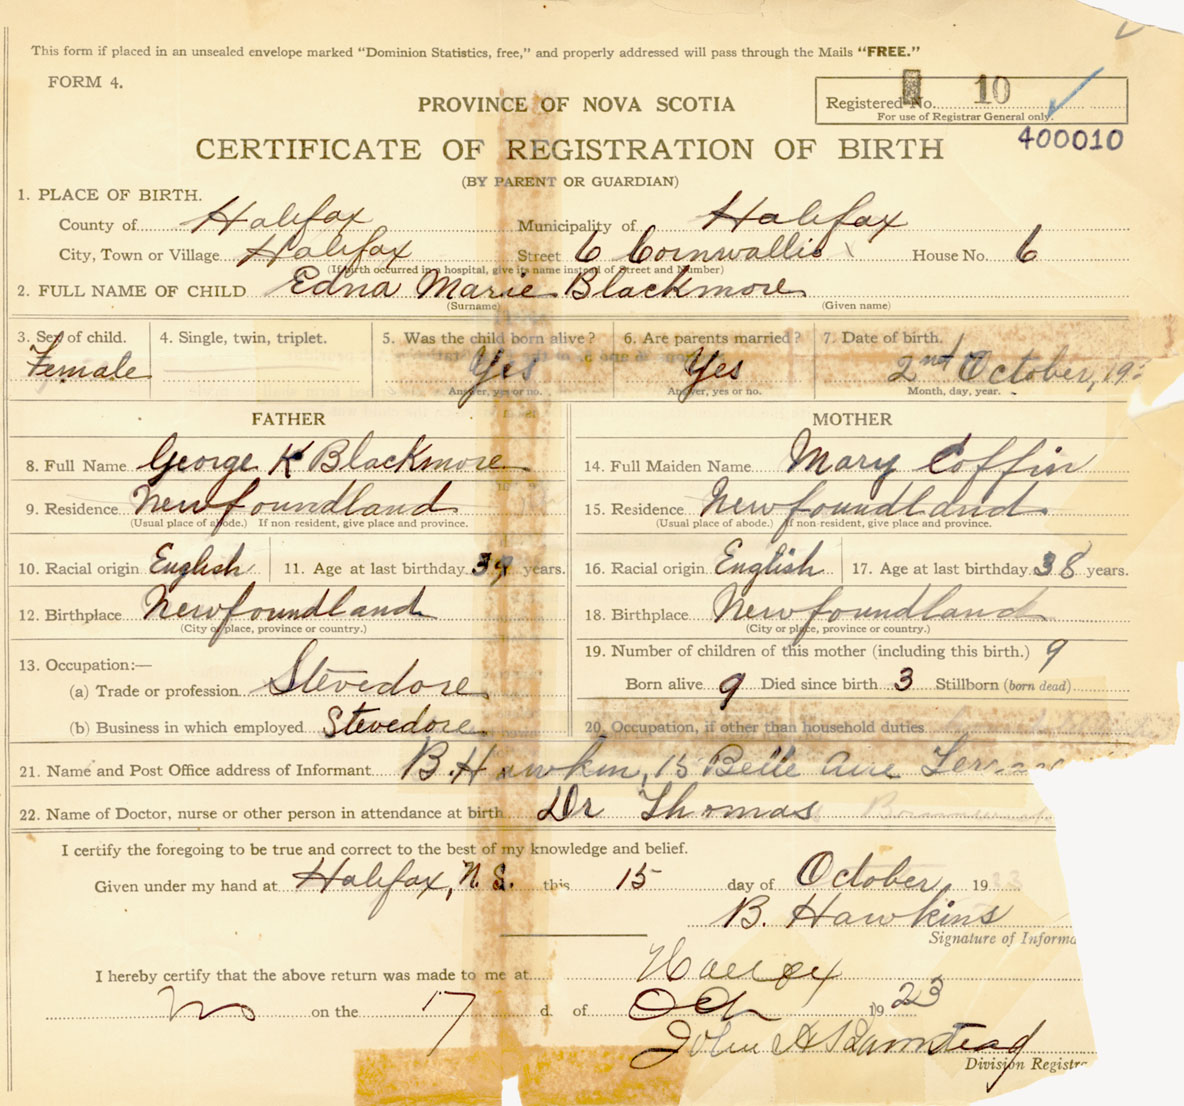 This form if placed in an unsealed envelope marked "Dominion Statistics, free," and properly addressed will pass through the Mails "FREE."
FORM 4.
PROVINCE OF NOVA SCOTIA
Registered No. 10
For use of Registrar General only.
400010
CERTIFICATE OF REGISTRATION OF BIRTH
(BY PARENT OR GUARDIAN)
1. PLACE OF BIRTH.
County of Halifax Municipality of Halifax
City, Town or Village Halifax Street 6 Cornwallis House No. 6
(If birth occurred in a hospital, give its name instead of Street and Number)
2. FULL NAME OF CHILD Edna Marie Blackmore
(Surname) (Given name)
3. Sex of child. 4. Single, twin, triplet. 5. Was the child born alive? 6. Are parents married? 7. Date of birth.
Female Yes Yes 2nd October, 19
Answer, yes or no. Answer, yes or no. Month, day, year.
FATHER MOTHER
8. Full Name George K Blackmore 14. Full Maiden Name Mary Coffin
9. Residence Newfoundland 15. Residence Newfoundland
(Usual place of abode.) If non-resident, give place and province. (Usual place of abode.) If non-resident, give place and province.
10. Racial origin English 11. Age at last birthday 39 years. 16. Racial origin English 17. Age at last birthday 38 years.
12. Birthplace Newfoundland 18. Birthplace Newfoundland
(City or place, province or country.) (City or place, province or country.)
13. Occupation:— 19. Number of children of this mother (including this birth.) 9
(a) Trade or profession Stevedore Born alive 9 Died since birth 3 Stillborn (born dead)
(b) Business in which employed Stevedore 20. Occupation, if other than household duties
21. Name and Post Office address of Informant B. Hawkin, 15 Belle Aire
22. Name of Doctor, nurse or other person in attendance at birth Dr Thomas
I certify the foregoing to be true and correct to the best of my knowledge and belief.
Given under my hand at Halifax, N.S. this 15 day of October 1923
B. Hawkins
Signature of Informa
I hereby certify that the above return was made to me at Halifax
NS on the 17 d. of Oct 1923
John A
Division Registra